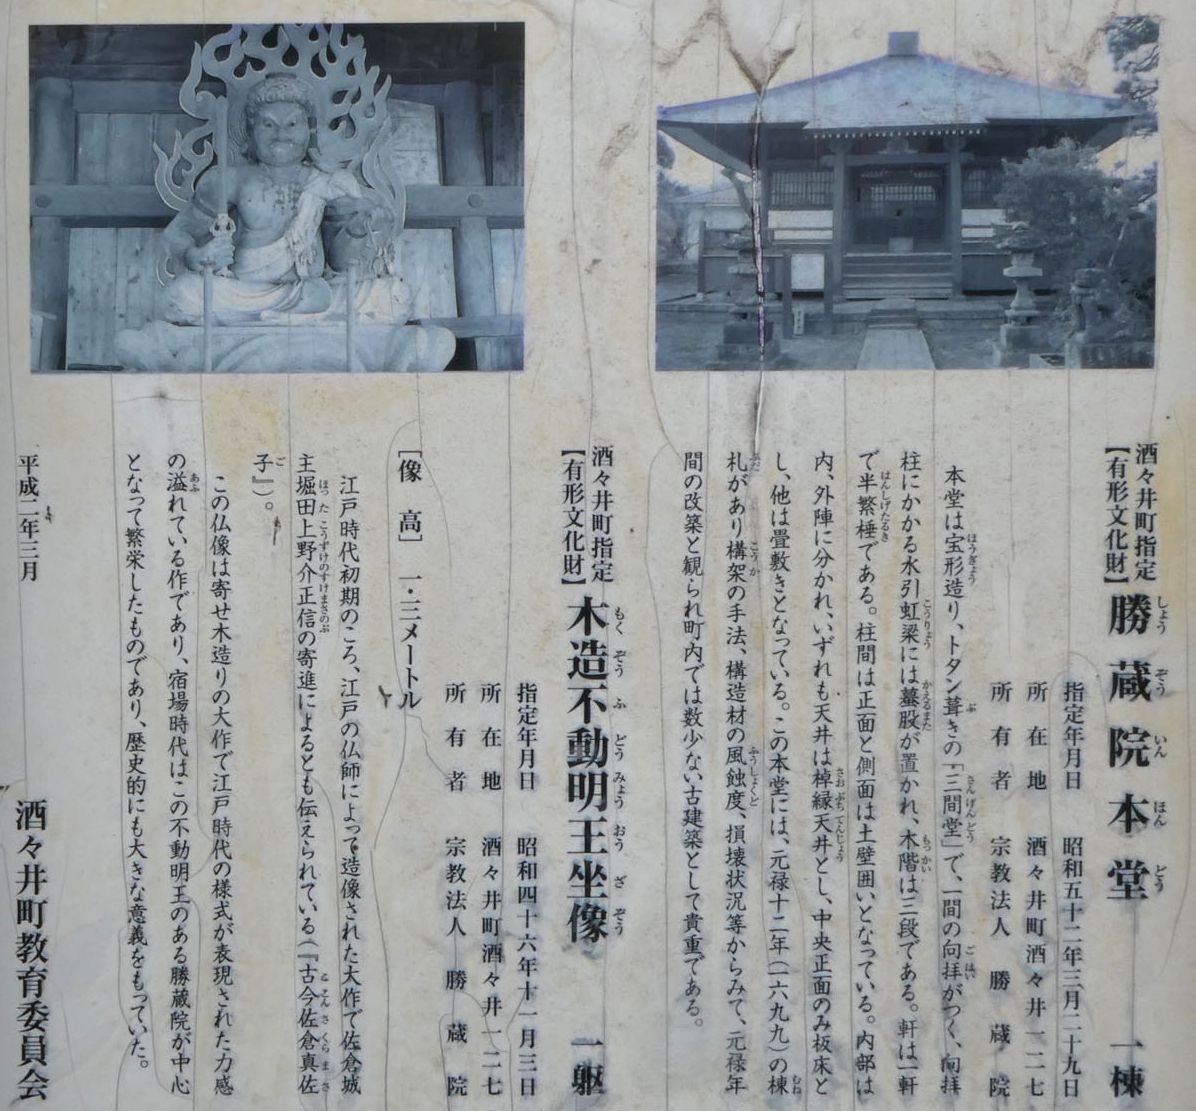 酒々井町指定
【有形文化財】
勝蔵院本堂 一棟
しょう ぞう いん ほん どう
指定年月日 昭和五十二年三月二十九日
所在地 酒々井町酒々井一二七
所有者 宗教法人 勝蔵院
本堂は宝形造り、トタン葺きの「三間堂」で、一間の向拝がつく、向拝
柱にかかる水引虹梁には蟇股が置かれ、木階は三段である。軒は一軒
で半繁棰である。柱間は正面と側面は土壁囲いとなっている。内部は
内、外陣に分かれ、いずれも天井は棹縁天井とし、中央正面のみ板床と
し、他は畳敷きとなっている。この本堂には、元禄十二年(一六九九)の棟
札があり構架の手法、構造材の風蝕度、損壊状況等からみて、元禄年
間の改築と観られ町内では数少ない古建築として貴重である。
酒々井町指定
【有形文化財】
木造不動明王坐像 一躯
もく ぞう ふ どう みょう おう ざ ぞう
指定年月日 昭和四十六年十一月三日
所在地 酒々井町酒々井一二七
所有者 宗教法人 勝蔵院
[像 高] 一・三メートル
江戸時代初期のころ、江戸の仏師によって造像された大作で佐倉城
主堀田上野介正信の寄進によるとも伝えられている(『古今佐倉真佐
子』)。
この仏像は寄せ木造りの大作で江戸時代の様式が表現された力感
の溢れている作であり、宿場時代はこの不動明王のある勝蔵院が中心
となって繁栄したものであり、歴史的にも大きな意義をもっていた。
平成二年三月
酒々井町教育委員会